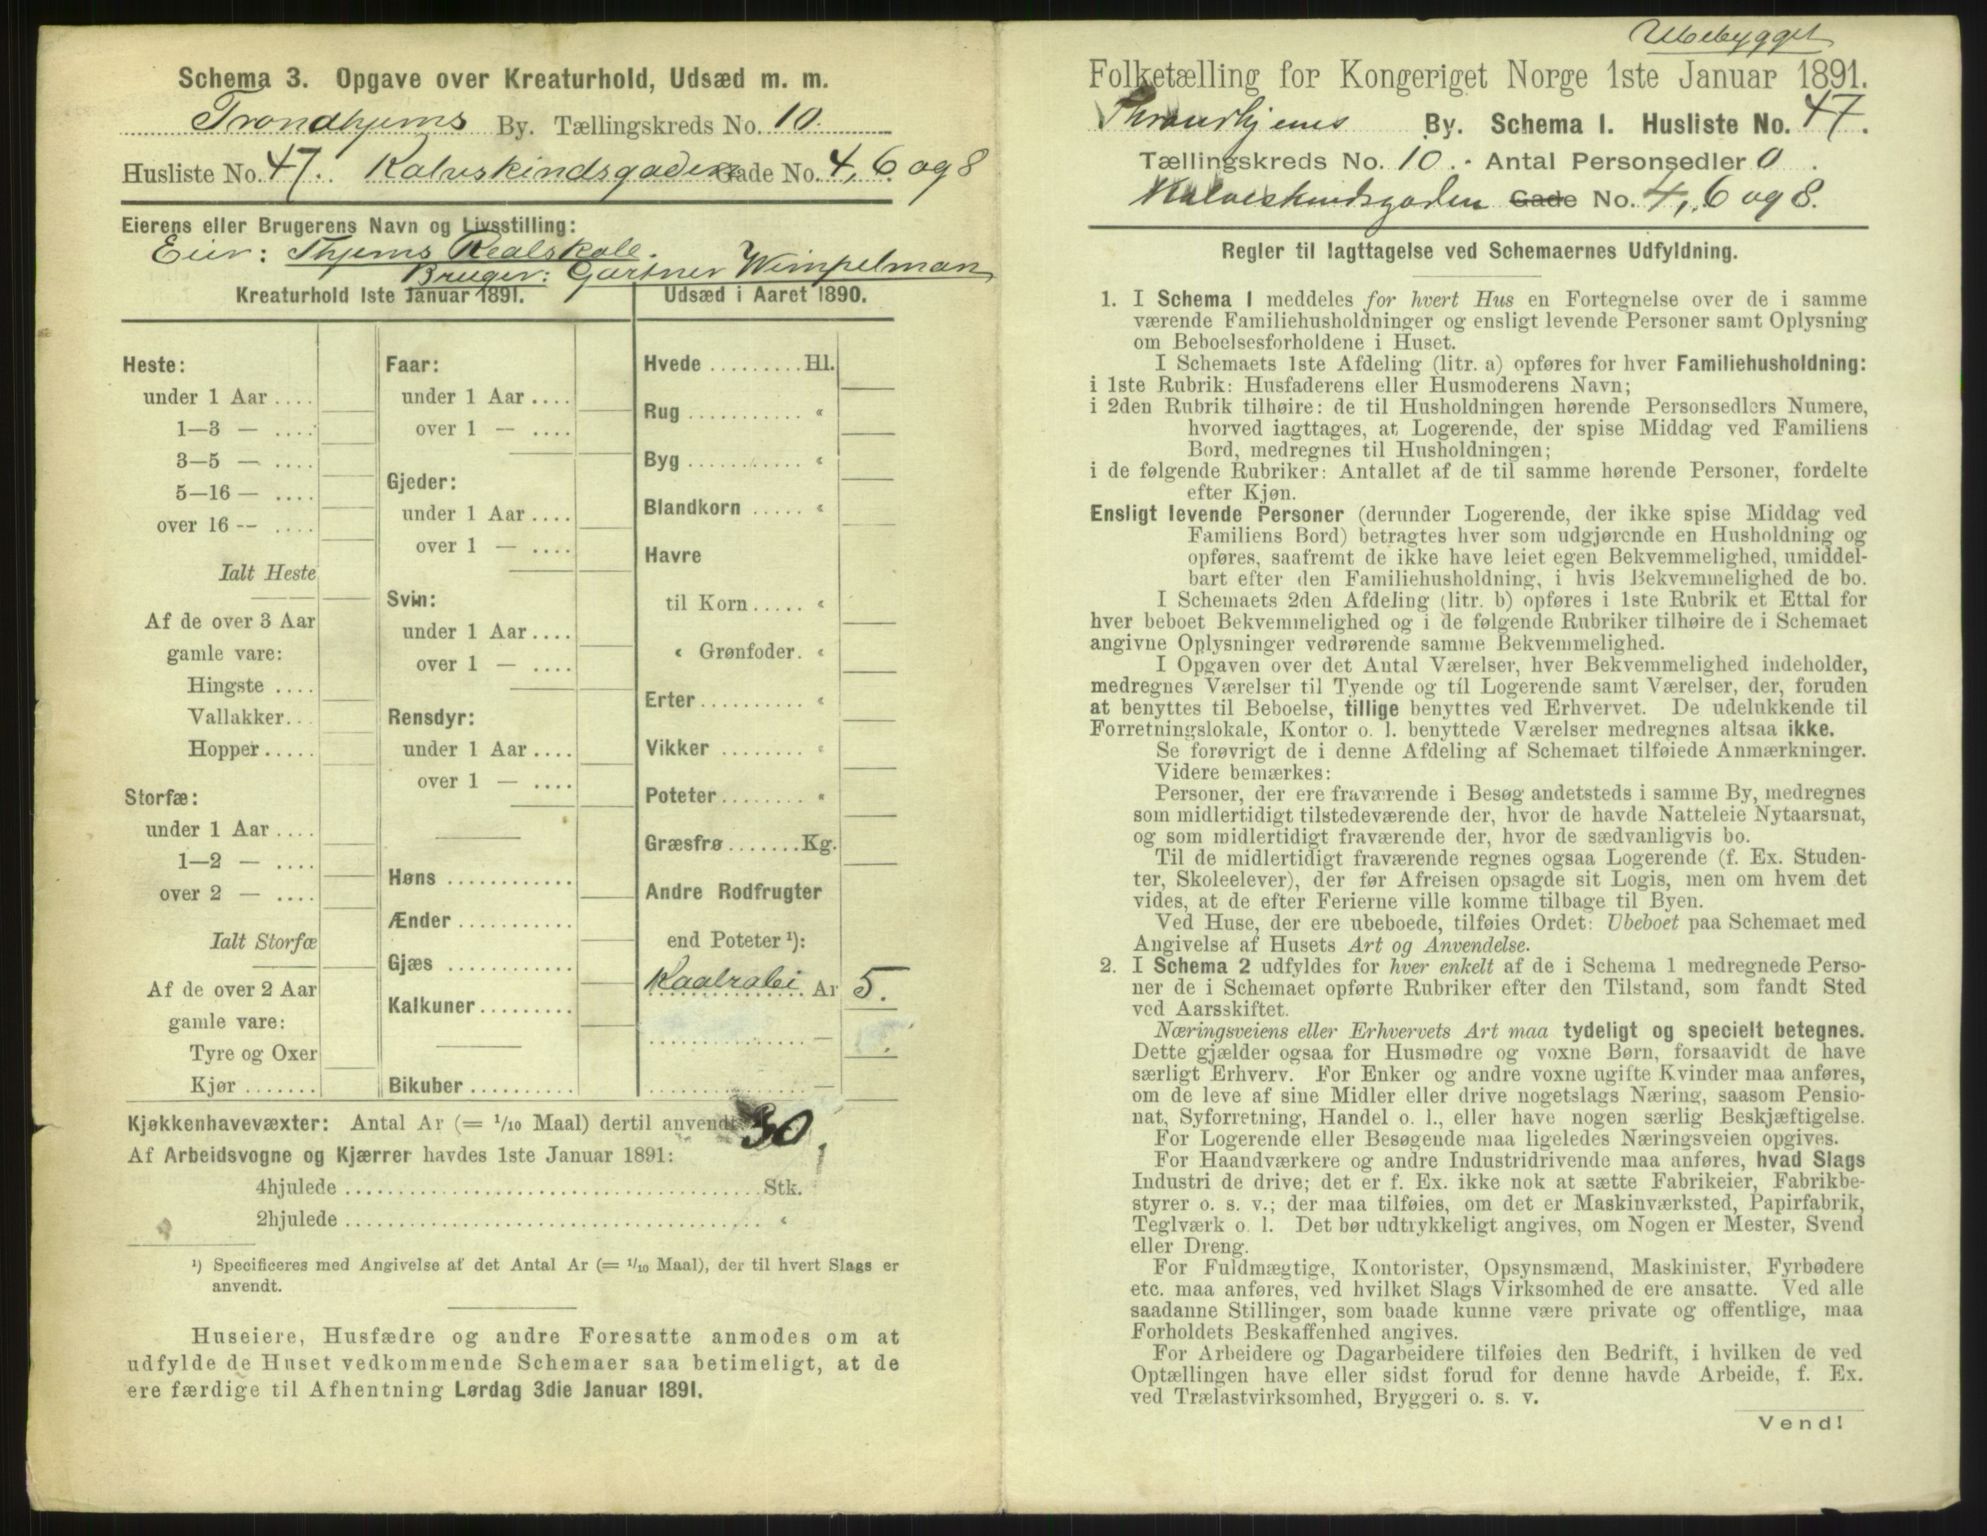 Schema 3. Opgave over Kreaturhold, Udsæd m. m.
Trondhjems By. Tællingskreds No. 10
Husliste No. 47. Kalvskindsgaden Gade No. 4, 6 og 8
Eierens eller Brugerens Navn og Livsstilling:
Eier: Thjems Realskole.
Bruger: Gartner Wimpelman
Kreaturhold 1ste Januar 1891.
Heste:
under 1 Aar ....
1—3 — ....
3—5 — ....
5—16 — ....
over 16 — ....
Ialt Heste
Af de over 3 Aar
gamle vare:
Hingste ....
Vallakker...
Hopper.....
Storfæ:
under 1 Aar ....
1—2 — ....
over 2 — ....
Ialt Storfæ
Af de over 2 Aar
gamle vare:
Tyre og Oxer
Kjør .......
Faar:
under 1 Aar ....
over 1 — ....
Gjeder:
under 1 Aar ....
over 1 — ....
Svin:
under 1 Aar ....
over 1 — ....
Rensdyr:
under 1 Aar ....
over 1 — ....
Høns ............
Ænder ...........
Gjæs ............
Kalkuner.........
Bikuber ..........
Udsæd i Aaret 1890.
Hvede .........Hl.
Rug ........... «
Byg ........... «
Blandkorn ..... «
Havre
til Korn ..... «
« Grønfoder. «
Erter.......... «
Vikker ........ «
Poteter........ «
Græsfrø .......Kg.
Andre Rodfrugter
end Poteter ¹):
Kaalrabi Ar 5.
............... —
............... —
Kjøkkenhavevæxter: Antal Ar (= 1/10 Maal) dertil anvendt 30
Af Arbeidsvogne og Kjærrer havdes 1ste Januar 1891:
4hjulede ........................................Stk.
2hjulede ........................................ «
¹) Specificeres med Angivelse af det Antal Ar (= 1/10 Maal), der til hvert Slags er
anvendt.
Huseiere, Husfædre og andre Foresatte anmodes om at
udfylde de Huset vedkommende Schemaer saa betimeligt, at de
ere færdige til Afhentning Lørdag 3die Januar 1891.
Ubebygget
Folketælling for Kongeriget Norge 1ste Januar 1891.
Throndhjems By. Schema 1. Husliste No. 47.
Tællingskreds No. 10. - Antal Personsedler 0.
Kalveskindsgaden Gade No. 4, 6 og 8.
Regler til Iagttagelse ved Schemaernes Udfyldning.
1. I Schema 1 meddeles for hvert Hus en Fortegnelse over de i samme
værende Familiehusholdninger og ensligt levende Personer samt Oplysning
om Beboelsesforholdene i Huset.
I Schemaets 1ste Afdeling (litr. a) opføres for hver Familiehusholdning:
i 1ste Rubrik: Husfaderens eller Husmoderens Navn;
i 2den Rubrik tilhøire: de til Husholdningen hørende Personsedlers Numere,
hvorved iagttages, at Logerende, der spise Middag ved Familiens
Bord, medregnes til Husholdningen;
i de følgende Rubriker: Antallet af de til samme hørende Personer, fordelte
efter Kjøn.
Ensligt levende Personer (derunder Logerende, der ikke spise Middag ved
Familiens Bord) betragtes hver som udgjørende en Husholdning og
opføres, saafremt de ikke have leiet egen Bekvemmelighed, umiddel-
bart efter den Familiehusholdning, i hvis Bekvemmelighed de bo.
I Schemaets 2den Afdeling (litr. b) opføres i 1ste Rubrik et Ettal for
hver beboet Bekvemmelighed og i de følgende Rubriker tilhøire de i Schemaet
angivne Oplysninger vedrørende samme Bekvemmelighed.
I Opgaven over det Antal Værelser, hver Bekvemmelighed indeholder,
medregnes Værelser til Tyende og til Logerende samt Værelser, der, foruden
at benyttes til Beboelse, tillige benyttes ved Erhvervet. De udelukkende til
Forretningslokale, Kontor o. l. benyttede Værelser medregnes altsaa ikke.
Se forøvrigt de i denne Afdeling af Schemaet tilføiede Anmærkninger.
Videre bemærkes:
Personer, der ere fraværende i Besøg andetsteds i samme By, medregnes
som midlertidigt tilstedeværende der, hvor de havde Natteleie Nytaarsnat,
og som midlertidigt fraværende der, hvor de sædvanligvis bo.
Til de midlertidigt fraværende regnes ogsaa Logerende (f. Ex. Studen-
ter, Skoleelever), der før Afreisen opsagde sit Logis, men om hvem det
vides, at de efter Ferierne ville komme tilbage til Byen.
Ved Huse, der ere ubeboede, tilføies Ordet: Ubeboet paa Schemaet med
Angivelse af Husets Art og Anvendelse.
2. I Schema 2 udfyldes for hver enkelt af de i Schema 1 medregnede Perso-
ner de i Schemaet opførte Rubriker efter den Tilstand, som fandt Sted
ved Aarsskiftet.
Næringsveiens eller Erhvervets Art maa tydeligt og specielt betegnes.
Dette gjælder ogsaa for Husmødre og voxne Børn, forsaavidt de have
særligt Erhverv. For Enker og andre voxne ugifte Kvinder maa anføres,
om de leve af sine Midler eller drive nogetslags Næring, saasom Pensio-
nat, Syforretning, Handel o. l., eller have nogen særlig Beskjæftigelse.
For Logerende eller Besøgende maa ligeledes Næringsveien opgives.
For Haandværkere og andre Industridrivende maa anføres, hvad Slags
Industri de drive; det er f. Ex. ikke nok at sætte Fabrikeier, Fabrikbe-
styrer o. s. v.; der maa tilføies, om det er Maskinværksted, Papirfabrik,
Teglværk o. l. Det bør udtrykkeligt angives, om Nogen er Mester, Svend
eller Dreng.
For Fuldmægtige, Kontorister, Opsynsmænd, Maskinister, Fyrbødere
etc. maa anføres, ved hvilket Slags Virksomhed de ere ansatte. Ved alle
saadanne Stillinger, som baade kunne være private og offentlige, maa
Forholdets Beskaffenhed angives.
For Arbeidere og Dagarbeidere tilføies den Bedrift, i hvilken de ved
Optællingen have eller sidst forud for denne havde Arbeide, f. Ex.
ved Trælastvirksomhed, Bryggeri o. s. v.
Vend!